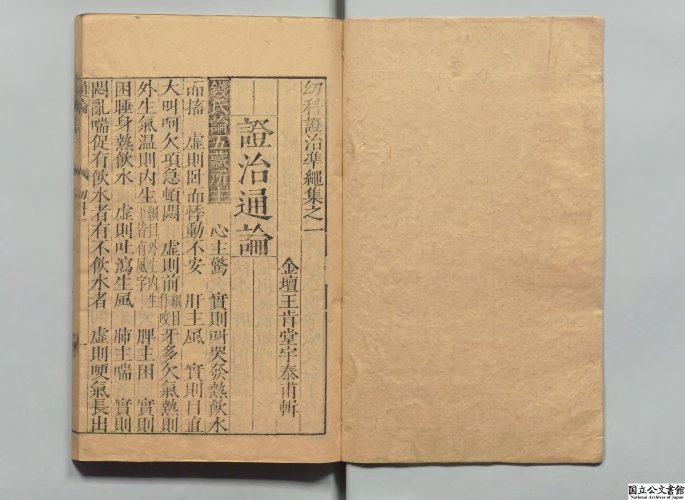 幼科證治準繩集之一
金壇王肯堂宇泰甫輯
證治通論
錢氏論五藏所主 心主驚 實則叫哭發熱飲水
而搐 虛則卧而悸動不安 肝主風 實則目直
大叫呵欠項急頓悶 虛則𪗨牙多欠氣熱則
外生氣溫則内生 脾主困 實則
困睡身熱飲水 虛則吐瀉生風 肺主喘 實則
悶亂喘促有飲水者有不飲水者 虛則哽氣長出
国立公文書館
National Archives of Japan